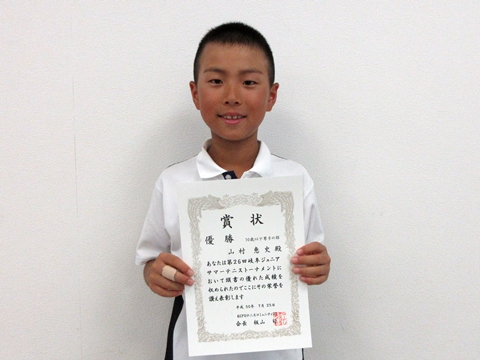 賞状
優勝 10歳以下男子の部
山村 恵史 殿
あなたは第26回岐阜ジュニア
サマーテニストーナメントに
おいて頭書の優れた成績を
収められたのでここにその栄誉を
讃え表彰します
平成30年7月25日
会長 板山